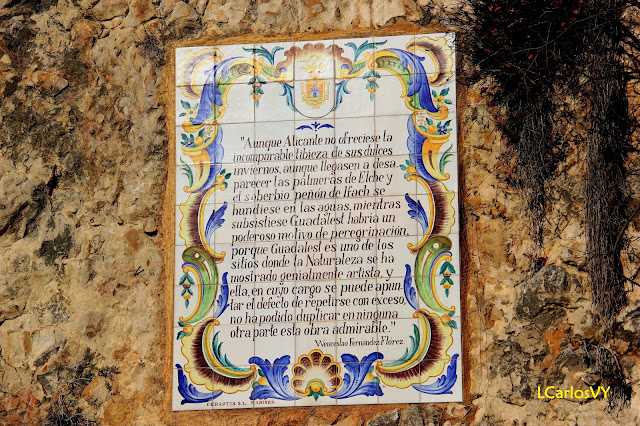 "Aunque Alicante no ofreciese la
incomparable tibieza de sus dulces
inviernos, aunque llegasen a desa
parecer las palmeras de Elche y
el soberbio peñón de Ifach se
hundiese en las aguas, mientras
subsistiese Guadalest habría un
poderoso motivo de peregrinación,
porque Guadalest es uno de los
sitios donde la Naturaleza se ha
mostrado genialmente artista, y
ella, en cuyo cargo se puede apun
tar el defecto de repetirse con exceso,
no ha podido duplicar en ninguna
otra parte esta obra admirable."
Wenceslao Fernández Florez
LCarlosVY